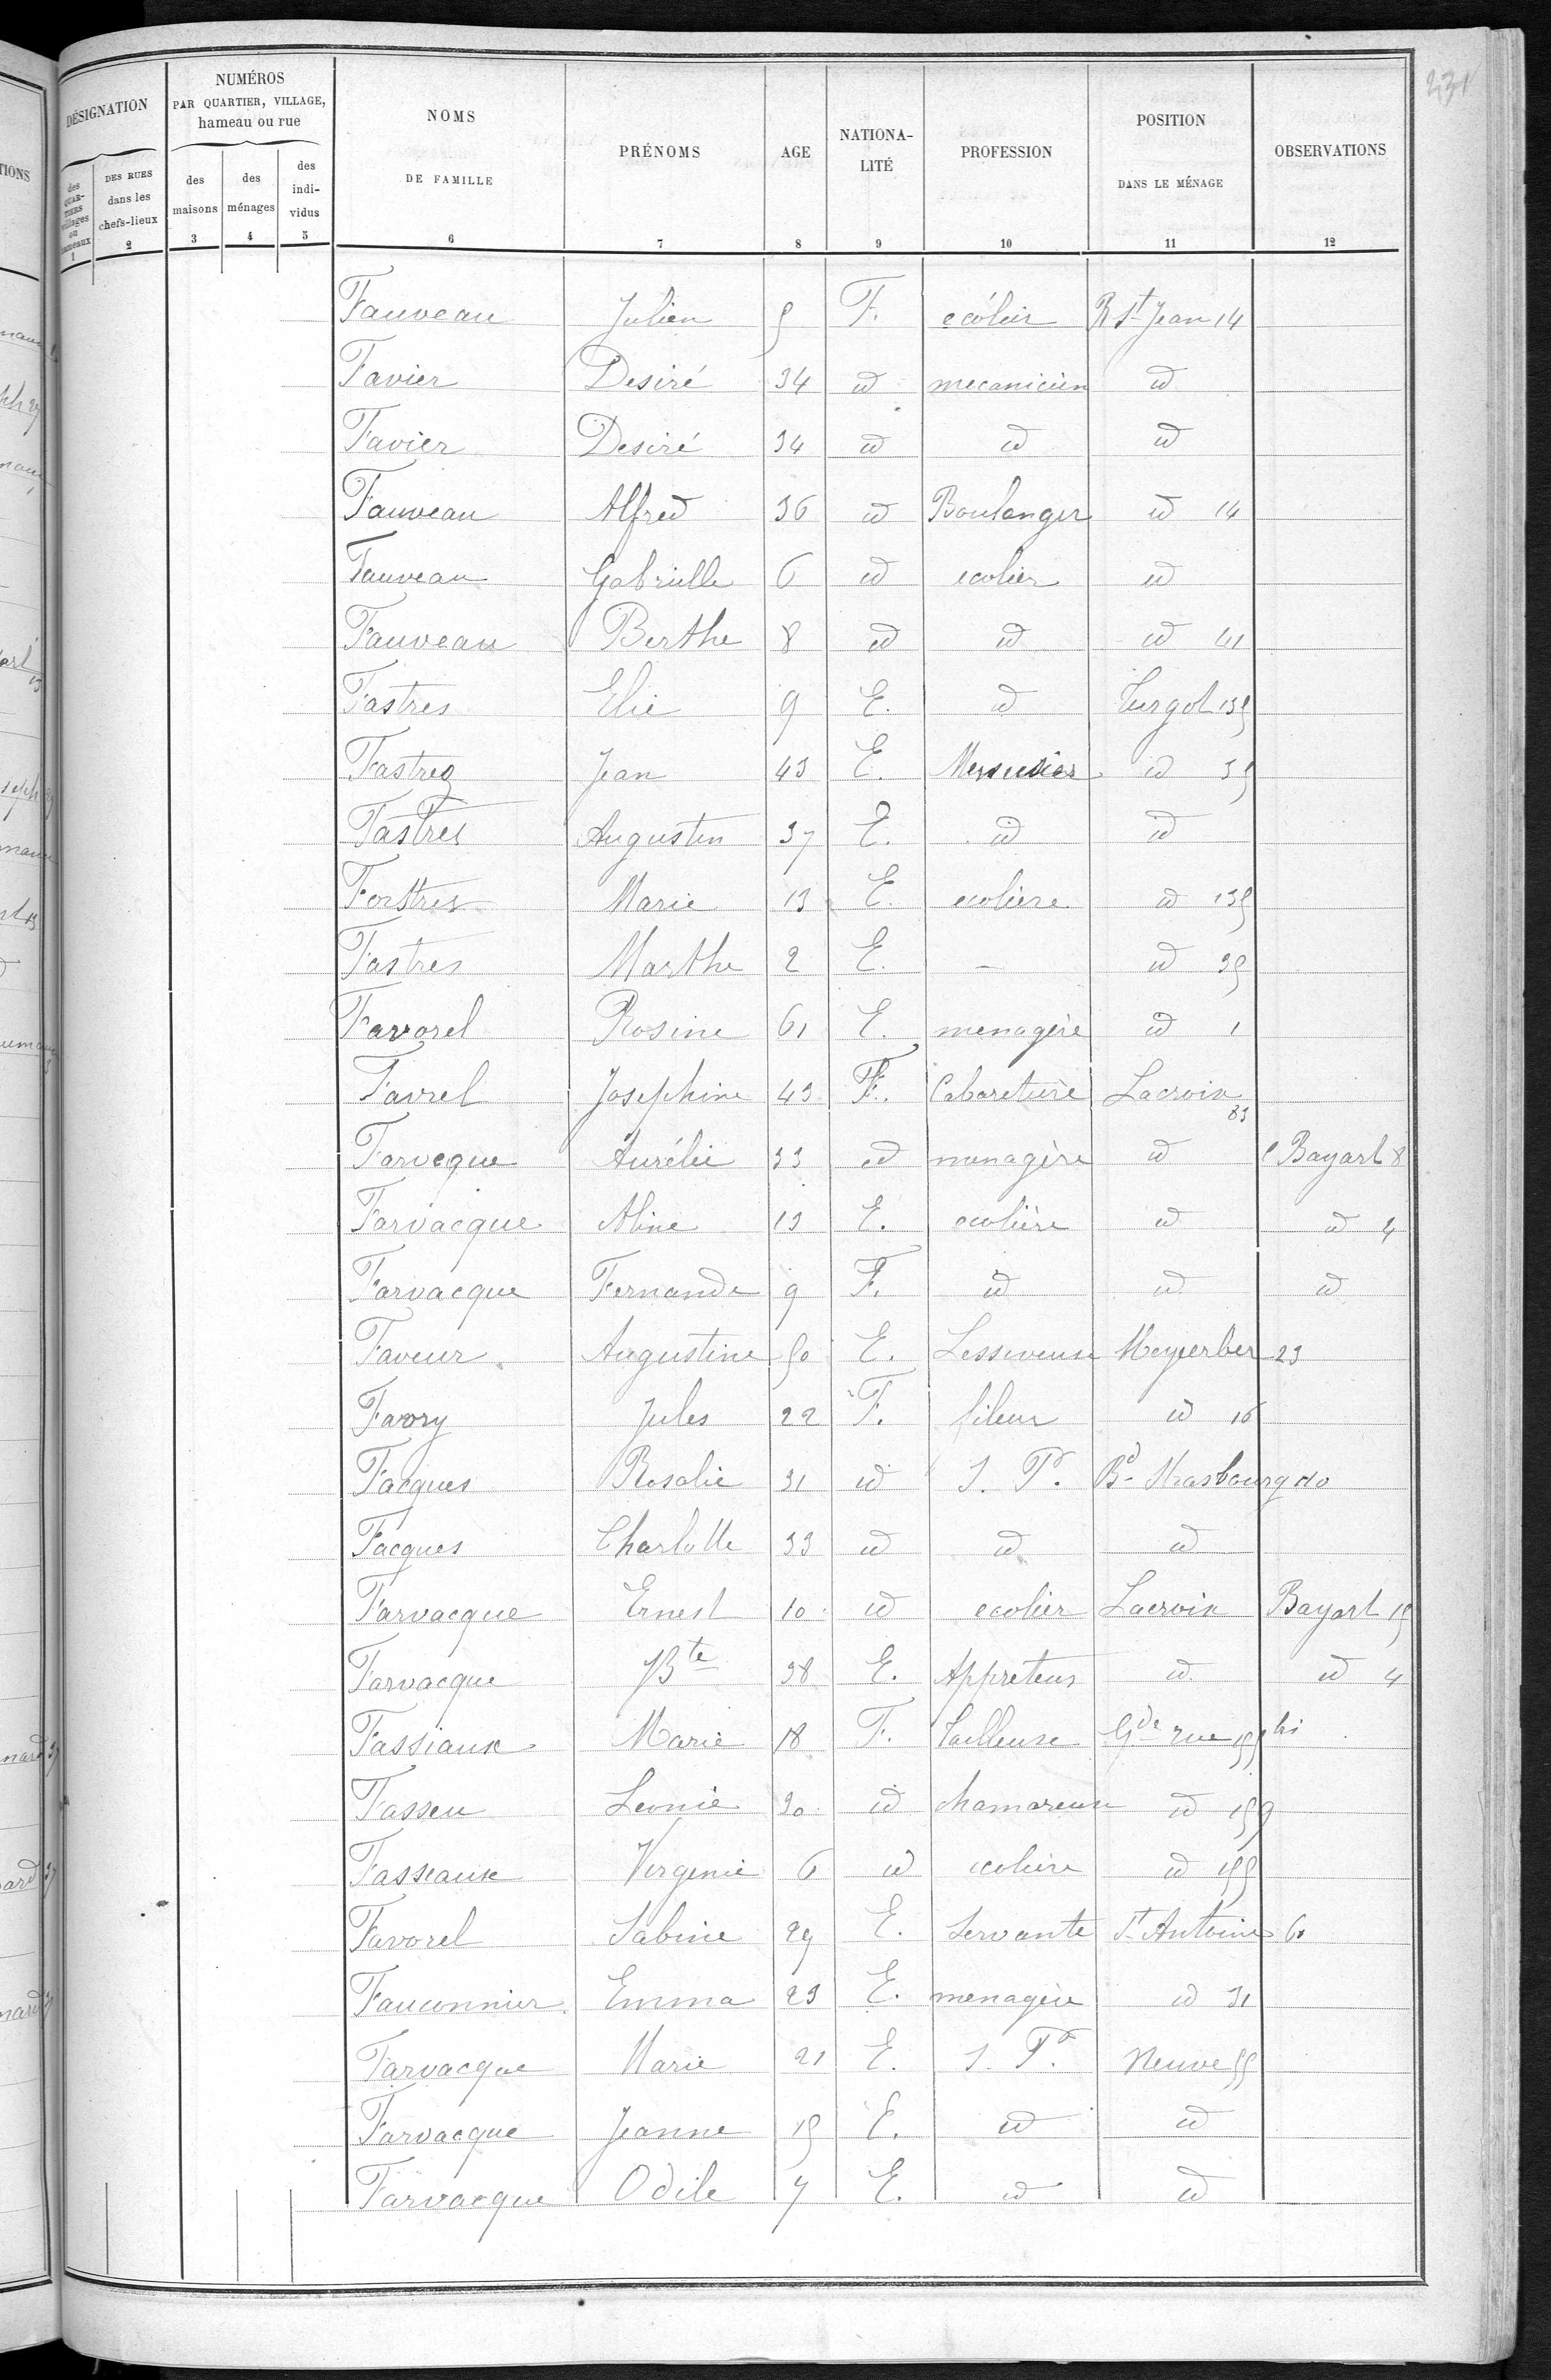 231
DÉSIGNATION
NUMÉROS
PAR QUARTIER, VILLAGE,
hameau ou rue
NOMS
DE FAMILLE
PRÉNOMS
AGE
NATIONA-
LITÉ
PROFESSION
POSITION
DANS LE MÉNAGE
OBSERVATIONS
des QUAR-TIERS villages ou hameaux
DES RUES dans les chefs-lieux
des maisons
des ménages
des indi-vidus
1 2 3 4 5 6 7 8 9 10 11 12
Fauveau Julien 5 F. ecolier R St Jean 14
Favier Desiré 34 id mecanicien id
Favier Desiré 34 id id id
Fauveau Alfred 36 id Boulanger id 14
Fauveau Gabrielle 6 id ecolier id
Fauveau Berthe 8 id id id 41
Fastres Elie 9 E. id Turgot 135
Fastres Jean 43 E. Menusier id 35
Fastres Augustin 37 E. id id
Fastres Marie 13 E. ecoliere id 135
Fastres Marthe 2 E. - id 35
Favorel Rosine 61 E. menagère id 1
Favrel Josephine 43 F. Cabaretière Lacroix 83
Farveque Aurélie 33 id menagère id C Bayart 8
Farvacque Aline 13 E. ecolière id id 4
Farvacque Fernande 9 F. id id id
Faveur Augustine 50 E. Lessiveuse Meyerber 23
Favry Jules 22 F. fileur id 16
Facques Rosalie 31 id S. Pr. Bd Strasbourg 110
Facques Charlotte 33 id id id
Farvacque Ernest 10 id ecolier Lacroix Bayart 15
Farvacque Bte 38 E. Appreteur id id 4
Fassiaux Marie 18 F. Tailleuse Gde rue 155 bis
Fasseu Leonie 30 id chamareuse id 159
Fasseaux Virginie 6 id ecoliere id 155
Favorel Sabine 29 E. Servante St Antoine 61
Fauconnier Emma 23 E. menagère id 31
Farvacque Marie 21 E. S. Pr. Neuve 55
Farvacque Jeanne 15 E. id id
Farvacque Odile 7 E. id id